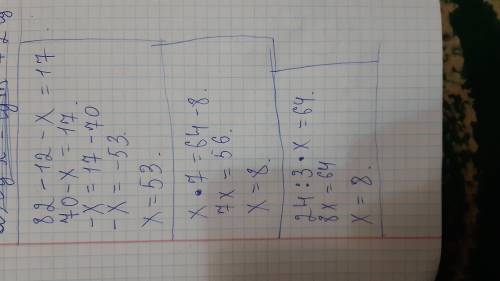 82-12-x=17
70-x=17.
-x=17-70
-x=-53.
x=53.
x•7=64-8.
7x=56.
x=8.
24:3•x=64.
8x=64
x=8.